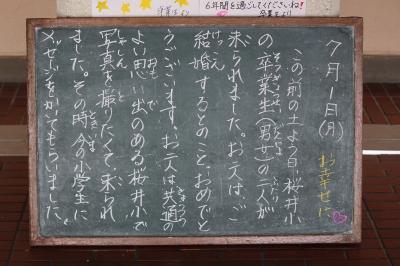 卒業生より
6年間を過ごしてくださいね!
卒業生より
7月1日(月)
お幸せに
この前の土よう日、桜井小
の卒業生(男女)の二人が
来られました。お二人は、ご
結婚するとのこと。おめでと
うございます。お二人は共通の
よい思い出のある桜井小で
写真を撮りたくて、来られ
ました。その時、今の小学生に
メッセージをかいてもらいました。